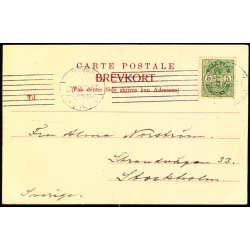 CARTE POSTALE
BREVKORT
(Paa denne Side skrives kun Adressen)
Til
5 5
Fru Alma Norström.
Strandvägen 33.
Stockholm
Sverige.